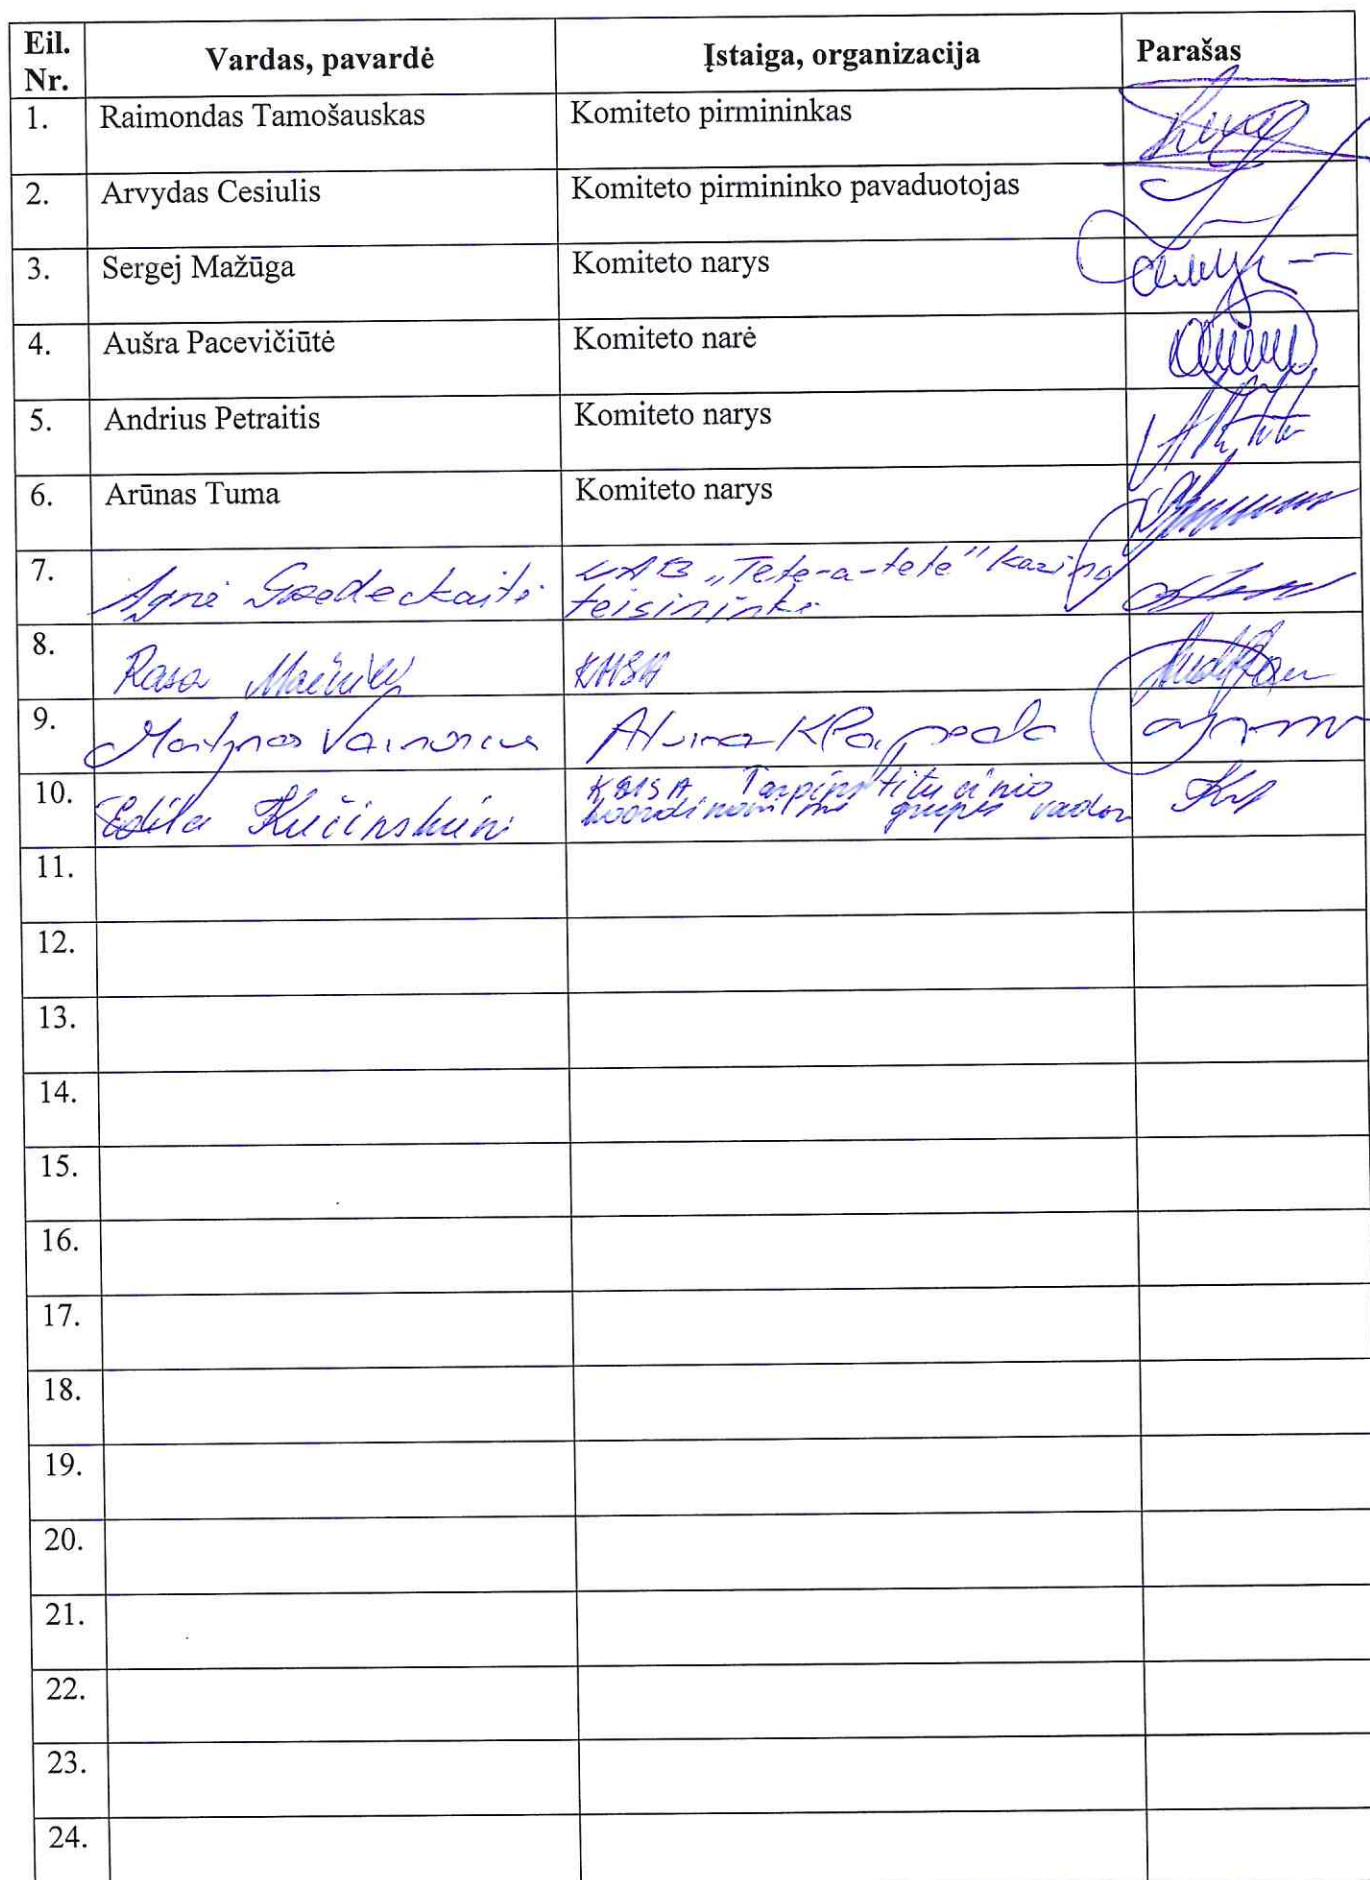 Eil. Nr. Vardas, pavardė Įstaiga, organizacija Parašas
1. Raimondas Tamošauskas Komiteto pirmininkas
2. Arvydas Cesiulis Komiteto pirmininko pavaduotojas
3. Sergej Mažūga Komiteto narys
4. Aušra Pacevičiūtė Komiteto narė
5. Andrius Petraitis Komiteto narys
6. Arūnas Tuma Komiteto narys
7. Agnė UAB „Tete-a-tete" kazino
teisininkė
8. Rasa KMSA
9. Martynas Vainorius Atvira Klaipėda
10. Edita Kučinskienė KMSA Tarpinstitucinio
koordinavimo grupės vadovė
11.
12.
13.
14.
15.
16.
17.
18.
19.
20.
21.
22.
23.
24.